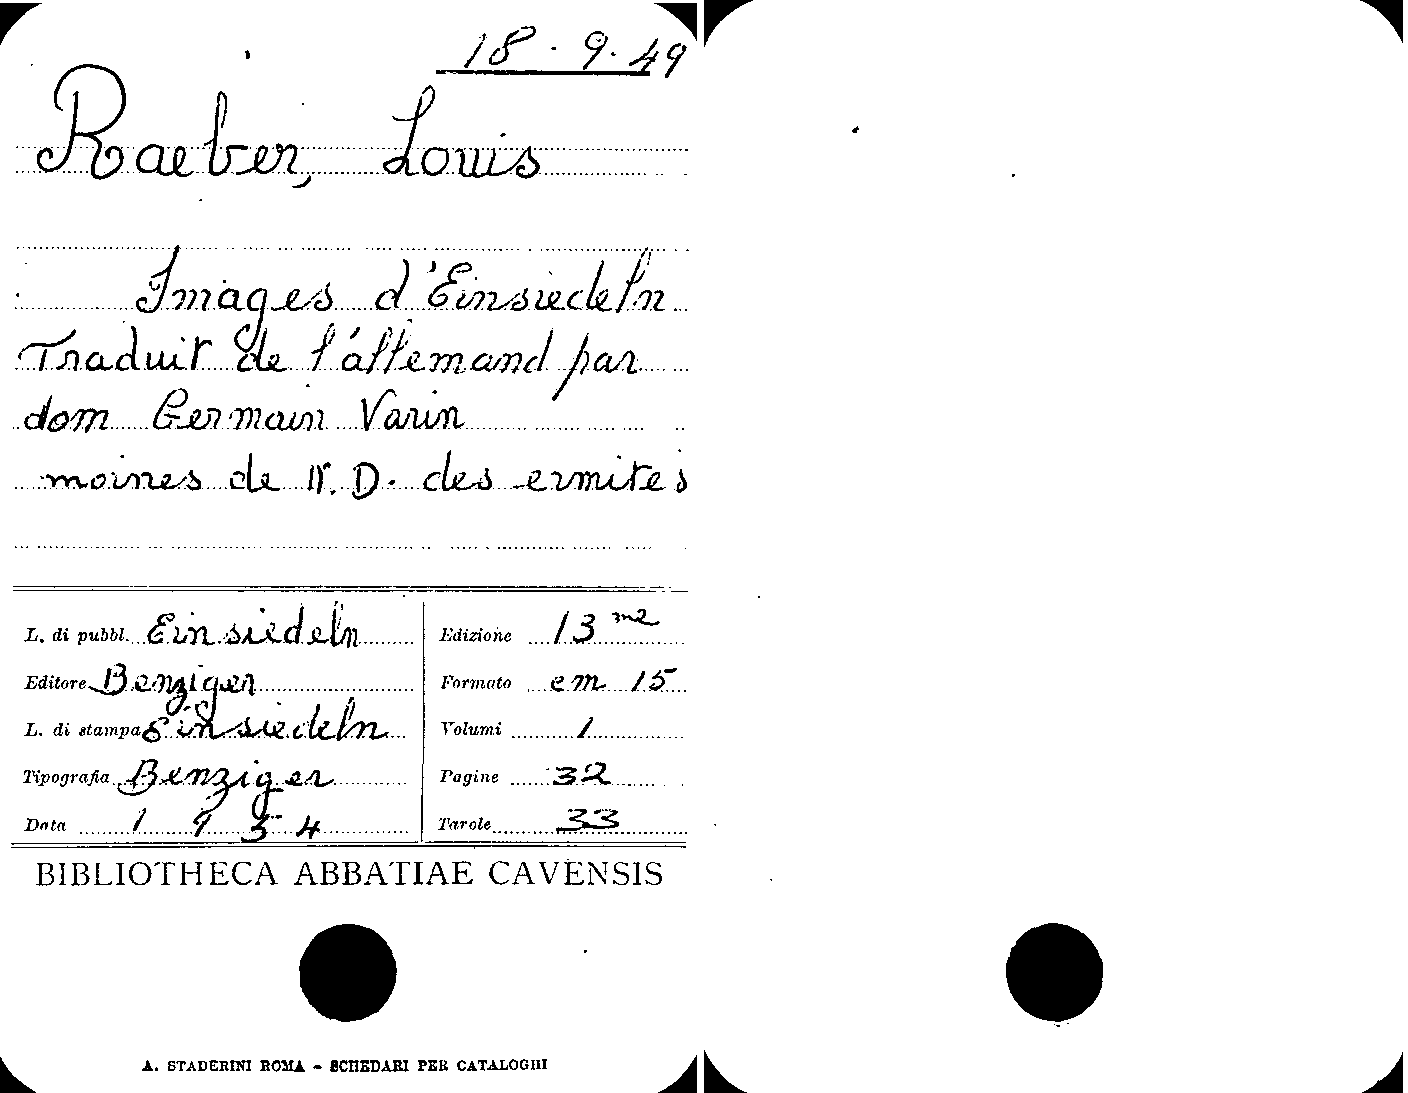 18.9.49
Raeber, Louis
Images d'Einsiedeln
Traduit de l'állemand par
dom Germain Varin
moines de N.D. des ermites
L. di pubbl. Einsiedeln
Editore Benziger
L. di stampa Einsiedeln
Tipografia Benziger
Data 1954
Edizione 13 me
Formato em 15
Volumi 1
Pagine 32
Tavole 33
BIBLIOTHECA ABBATIAE CAVENSIS
A. STADERINI ROMA - SCHEDARI PER CATALOGHI